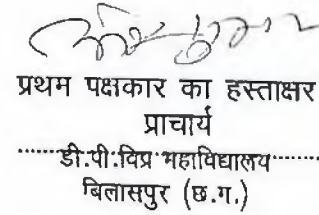 प्रथम पक्षकार का हस्ताक्षर
प्राचार्य
डी.पी.विप्र महाविद्यालय
बिलासपुर (छ.ग.)